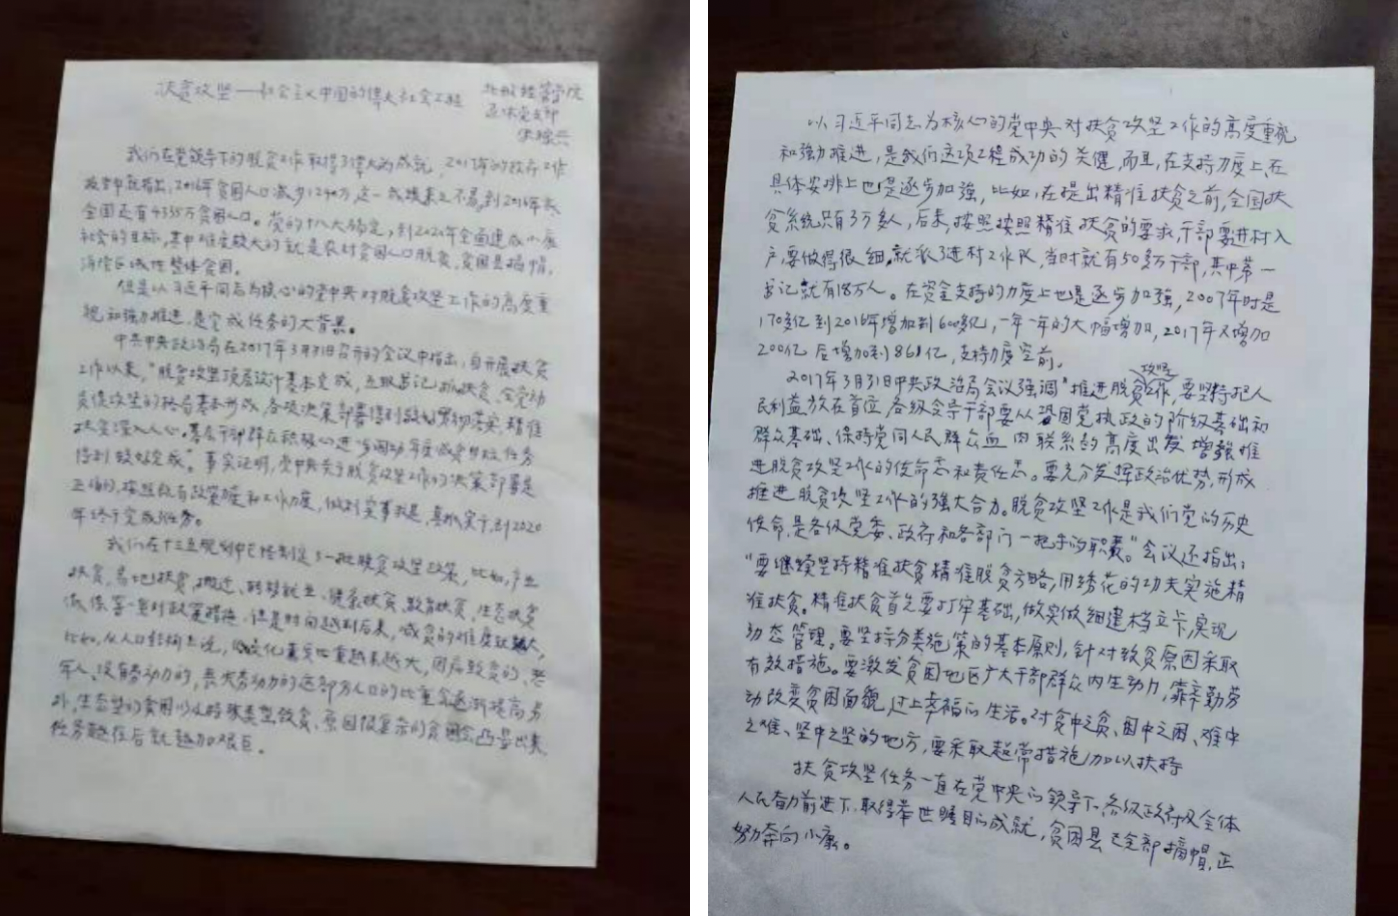 扶贫攻坚——社会主义中国的伟大社会工程
经管学院
退休党支部
我们在党领导下的脱贫工作取得了伟大的成就，2017年的政府工作
报告中就指出，2016年贫困人口减少1240万，这一成绩来之不易，到2016年末
全国还有4335万贫困人口。党的十八大确定，到2020年全面建成小康
社会的目标，其中难度较大的就是农村贫困人口脱贫，贫困县摘帽，
消除区域性整体贫困。
但是以习近平同志为核心的党中央对脱贫攻坚工作的高度重
视和强力推进，是完成任务的大背景。
中共中央政治局在2017年3月31日召开的会议中指出，自开展扶贫
工作以来，“脱贫攻坚顶层设计基本完成，五级书记抓扶贫，全党动
员促攻坚的格局基本形成，各项决策部署得到较好贯彻落实，精准
扶贫深入人心。基层干部群众积极心进步调动年度减贫 任务
得到较好完成”。事实证明，党中央关于脱贫攻坚工作的决策部署是
正确的，按照既有政策 和工作力度，做到实事求是，真抓实干，到2020
年终于完成任务。
我们在十三五规划中已经制定了一批脱贫攻坚政策，比如，产业
扶贫，易地扶贫，搬迁，转移就业、健康扶贫、教育扶贫、生态扶贫
等一系列政策措施，但是时间越到后来，减贫的难度还越大，
比如，从人口结构上说，因 比重越来越大，因病致贫的、老
年人、没有劳动力的，丧失劳动力的这部分人口的比重会逐渐提高，另
外，生态型的贫困以及特殊类型致贫、原因很复杂的贫困会凸显出来
任务越往后就越加艰巨。
以习近平同志为核心的党中央对扶贫攻坚工作的高度重视
和强力推进，是我们这项工程成功的关键，而且，在支持力度上，在
具体安排上也是逐步加强，比如，在提出精准扶贫之前，全国扶
贫系统只有3万多人，后来，按照按照精准扶贫的要求，干部要进村入
户，要做得很细。就派了进村工作队，当时就有50多万干部，其中第一
书记就有18万人。在资金支持的力度上也是逐步加强，2007年时是
170多亿到2016年增加到600多亿，一年一年的大幅增加，2017年又增加
200亿后增加到861亿，支持力度空前。
2017年3月31日中央政治局会议强调“推进脱贫攻坚工作，要坚持把人
民利益放在首位，各级领导干部要从巩固党执政的阶级基础和
群众基础、保持党同人民群众血肉联系的高度出发增强推
进脱贫攻坚工作的使命感和责任感。要充分发挥政治优势，形成
推进脱贫攻坚工作的强大合力。脱贫攻坚工作是我们党的历史
使命，是各级党委、政府和各部门一把手的职责。”会议还指出：
“要继续坚持精准扶贫精准脱贫方略，用绣花的功夫实施精
准扶贫。精准扶贫首先要打牢基础，做实做细建档立卡，实现
动态管理。要坚持分类施策的基本原则，针对致贫原因采取
有效措施。要激发贫困地区广大干部群众内生动力，靠辛勤劳
动改变贫困面貌，过上幸福的生活。对贫中之贫、困中之困、难中
之难、坚中之坚的地方，要采取超常措施加以扶持
扶贫攻坚任务一直在党中央的领导下、各级政府及全体
人民奋力前进下，取得举世瞩目的成就，贫困县已全部摘帽，正
努力奔向小康。